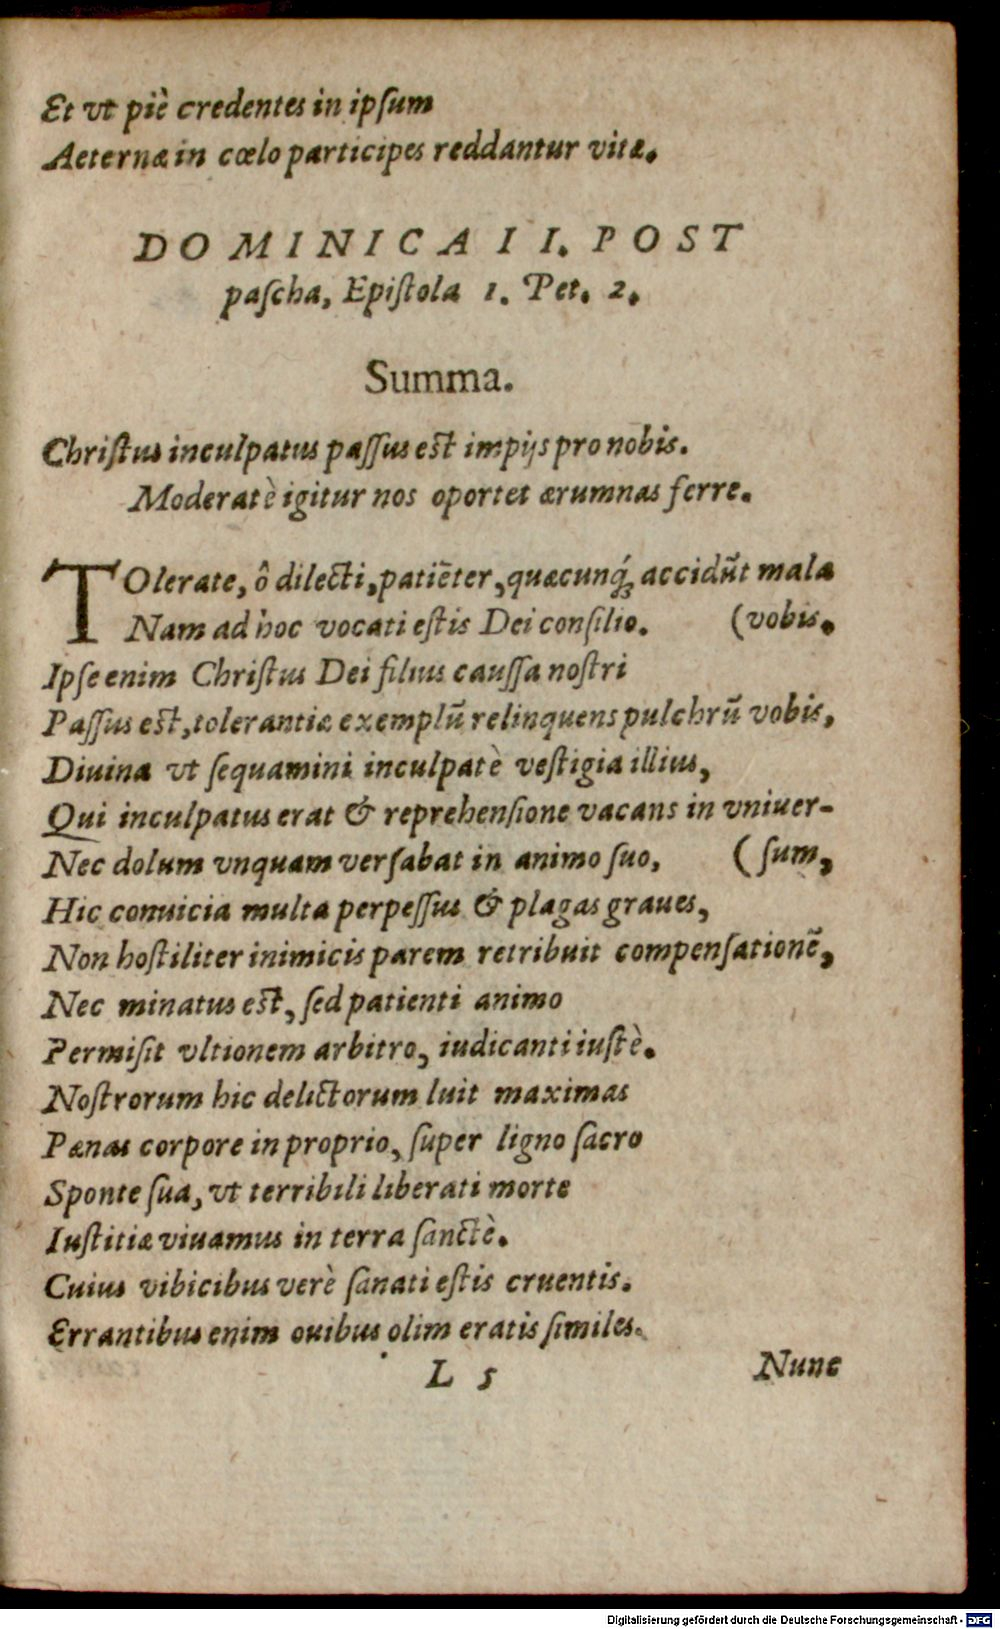 Et vt piè credentes in ipſum
Aeternæ in cœlo participes reddantur vitæ.
DOMINICA II. POST
paſcha, Epiſtola 1. Pet. 2.
Summa.
Chriſtus inculpatus paſſus eſt impijs pro nobis.
Moderatè igitur nos oportet ærumnas ferre.
TOlerate, ô dilecti, patiẽter, quæcunq́ꝫ accidũt mala
Nam ad hoc vocati eſtis Dei conſilio. (vobis.
Ipſe enim Chriſtus Dei filius cauſſa noſtri
Paſſus eſt, tolerantiæ exemplũ relinquens pulchrũ vobis,
Diuina vt ſequamini inculpatè veſtigia illius,
Qui inculpatus erat & reprehenſione vacans in vniuer-
Nec dolum vnquam verſabat in animo ſuo, (ſum,
Hic conuicia multa perpeſſus & plagas graues,
Non hoſtiliter inimicis parem retribuit compenſationẽ,
Nec minatus eſt, ſed patienti animo
Permiſit vltionem arbitro, iudicanti iuſtè.
Noſtrorum hic delictorum luit maximas
Pænas corpore in proprio, ſuper ligno ſacro
Sponte ſua, vt terribili liberati morte
Iuſtitiæ viuamus in terra ſanctè.
Cuius vibicibus verè ſanati eſtis cruentis.
Errantibus enim ouibus olim eratis ſimiles.
L 5 Nunc
Digitalisierung gefördert durch die Deutsche Forschungsgemeinschaft - DFG